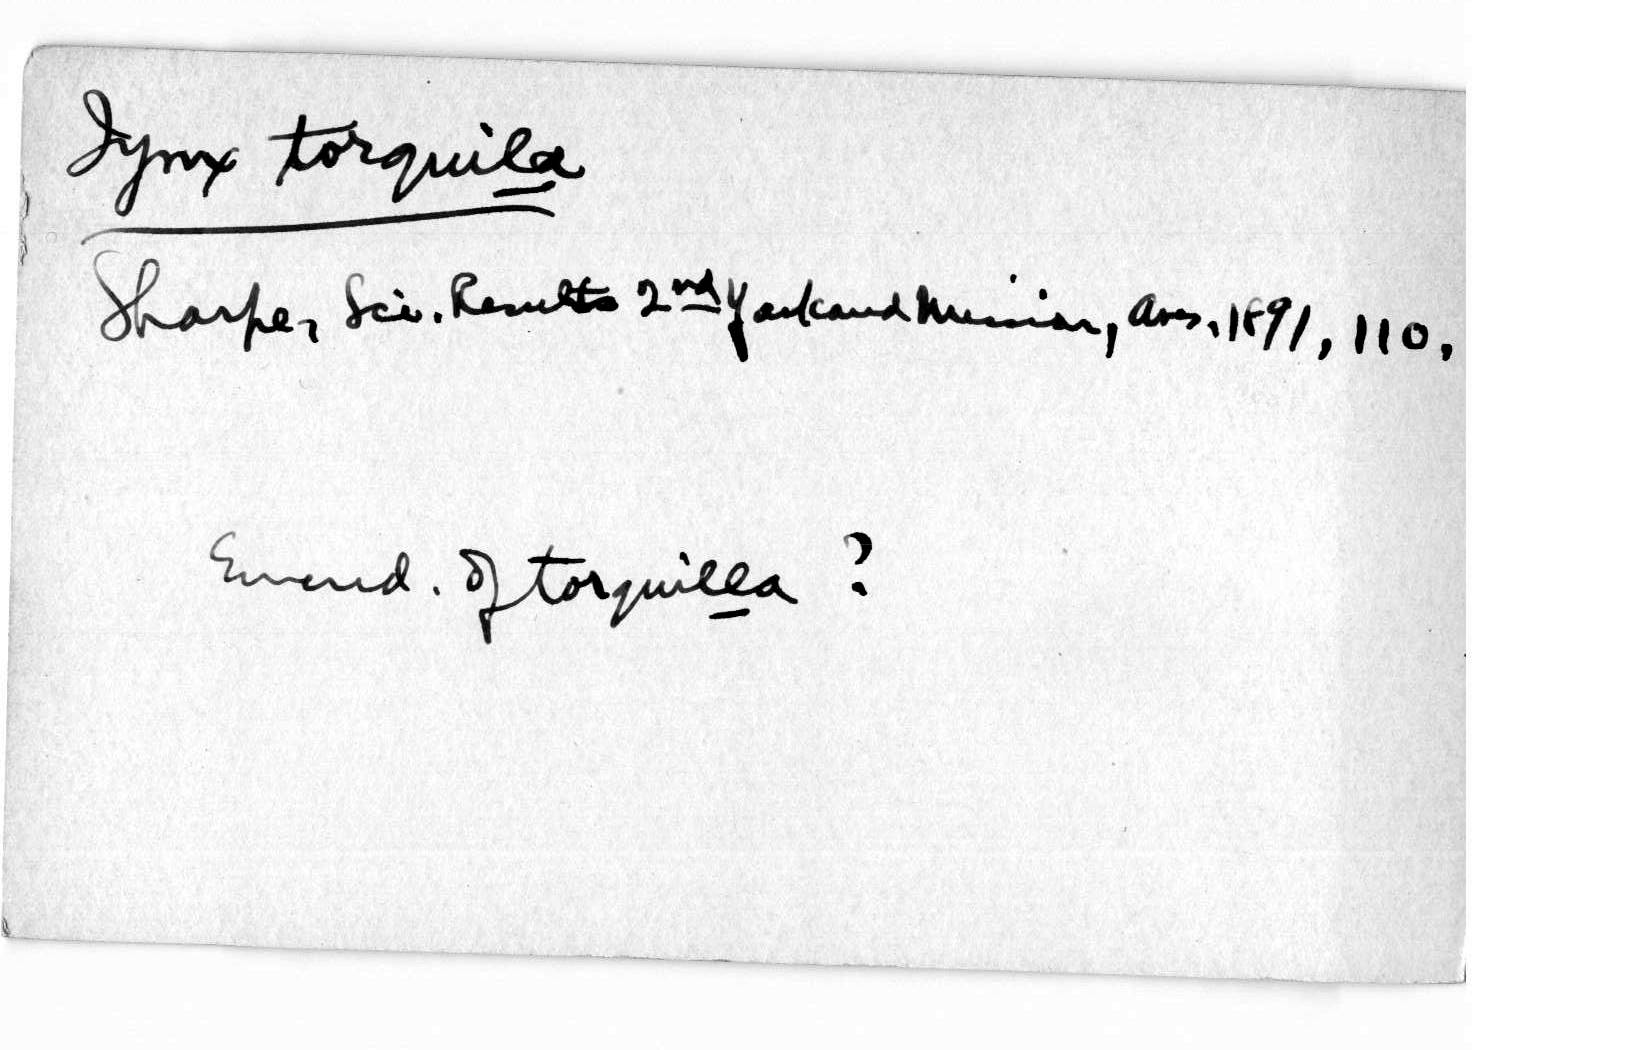 Iynx torquila
Sharpe, Sci. Results 2nd Yarkand Mission, Aves, 1891, 110.
Emend. of torquilla ?